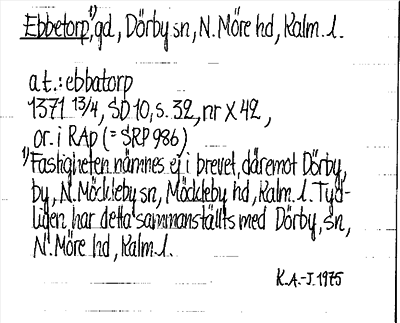 Ebbetorp,¹⁾ gd., Dörby sn, N. Möre hd, Kalm. l.
a t.: ebbatorp
1371 13/4, SD 10, s. 32, nr X 42,
or. i RAp (= SRP 986)
¹⁾Fastigheten nämnes ej i brevet, däremot Dörby,
by, N. Möckleby sn, Möckleby hd, Kalm. l. Tyd-
ligen har detta sammanställts med Dörby, sn,
N. Möre hd, Kalm. l.
K.A.-J. 1975